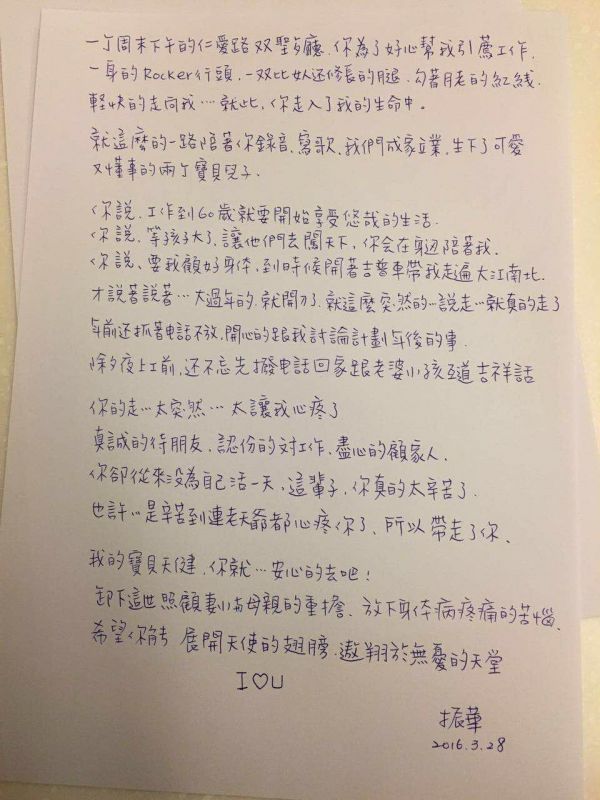 一个周末下午的仁愛路双聖歺廳.你為了好心幫我引薦工作.
一身的Rocker行頭.一双比女人还修長的腿.勾著月老的紅綫.
輕快的走向我…就此,你走入了我的生命中。
就這麼的一路陪著你錄音、寫歌、我們成家立業,生下了可愛
又懂事的兩个寶貝兒子.
你說.工作到60歲就要開始享受悠哉的生活.
你說、等孩子大了.讓他們去闖天下,你会在身边陪著我.
你說、要我顧好身体,到時候開著吉普車帶我走遍大江南北.
才說著說著…大過年的.就開刀.就這麼突然的…說走…就真的走了
年前还抓著電話不放,開心的跟我討論計劃年後的事.
除夕夜上工前,还不忘先撥電話回家跟老婆小孩互道吉祥話
你的走…太突然…太讓我心疼了
真誠的待朋友.認份的对工作.盡心的顧家人.
你卻從來沒為自己活一天,這輩子,你真的太辛苦了.
也許…是辛苦到連老天爺都心疼你了、所以帶走了你.
我的寶貝天健.你就…安心的去吧!
卸下這世照顧妻小与母親的重擔、放下身体病疼痛的苦惱.
希望你能 展開天使的翅膀.遨翔於無憂的天堂
I♡U
振華
2016.3.28